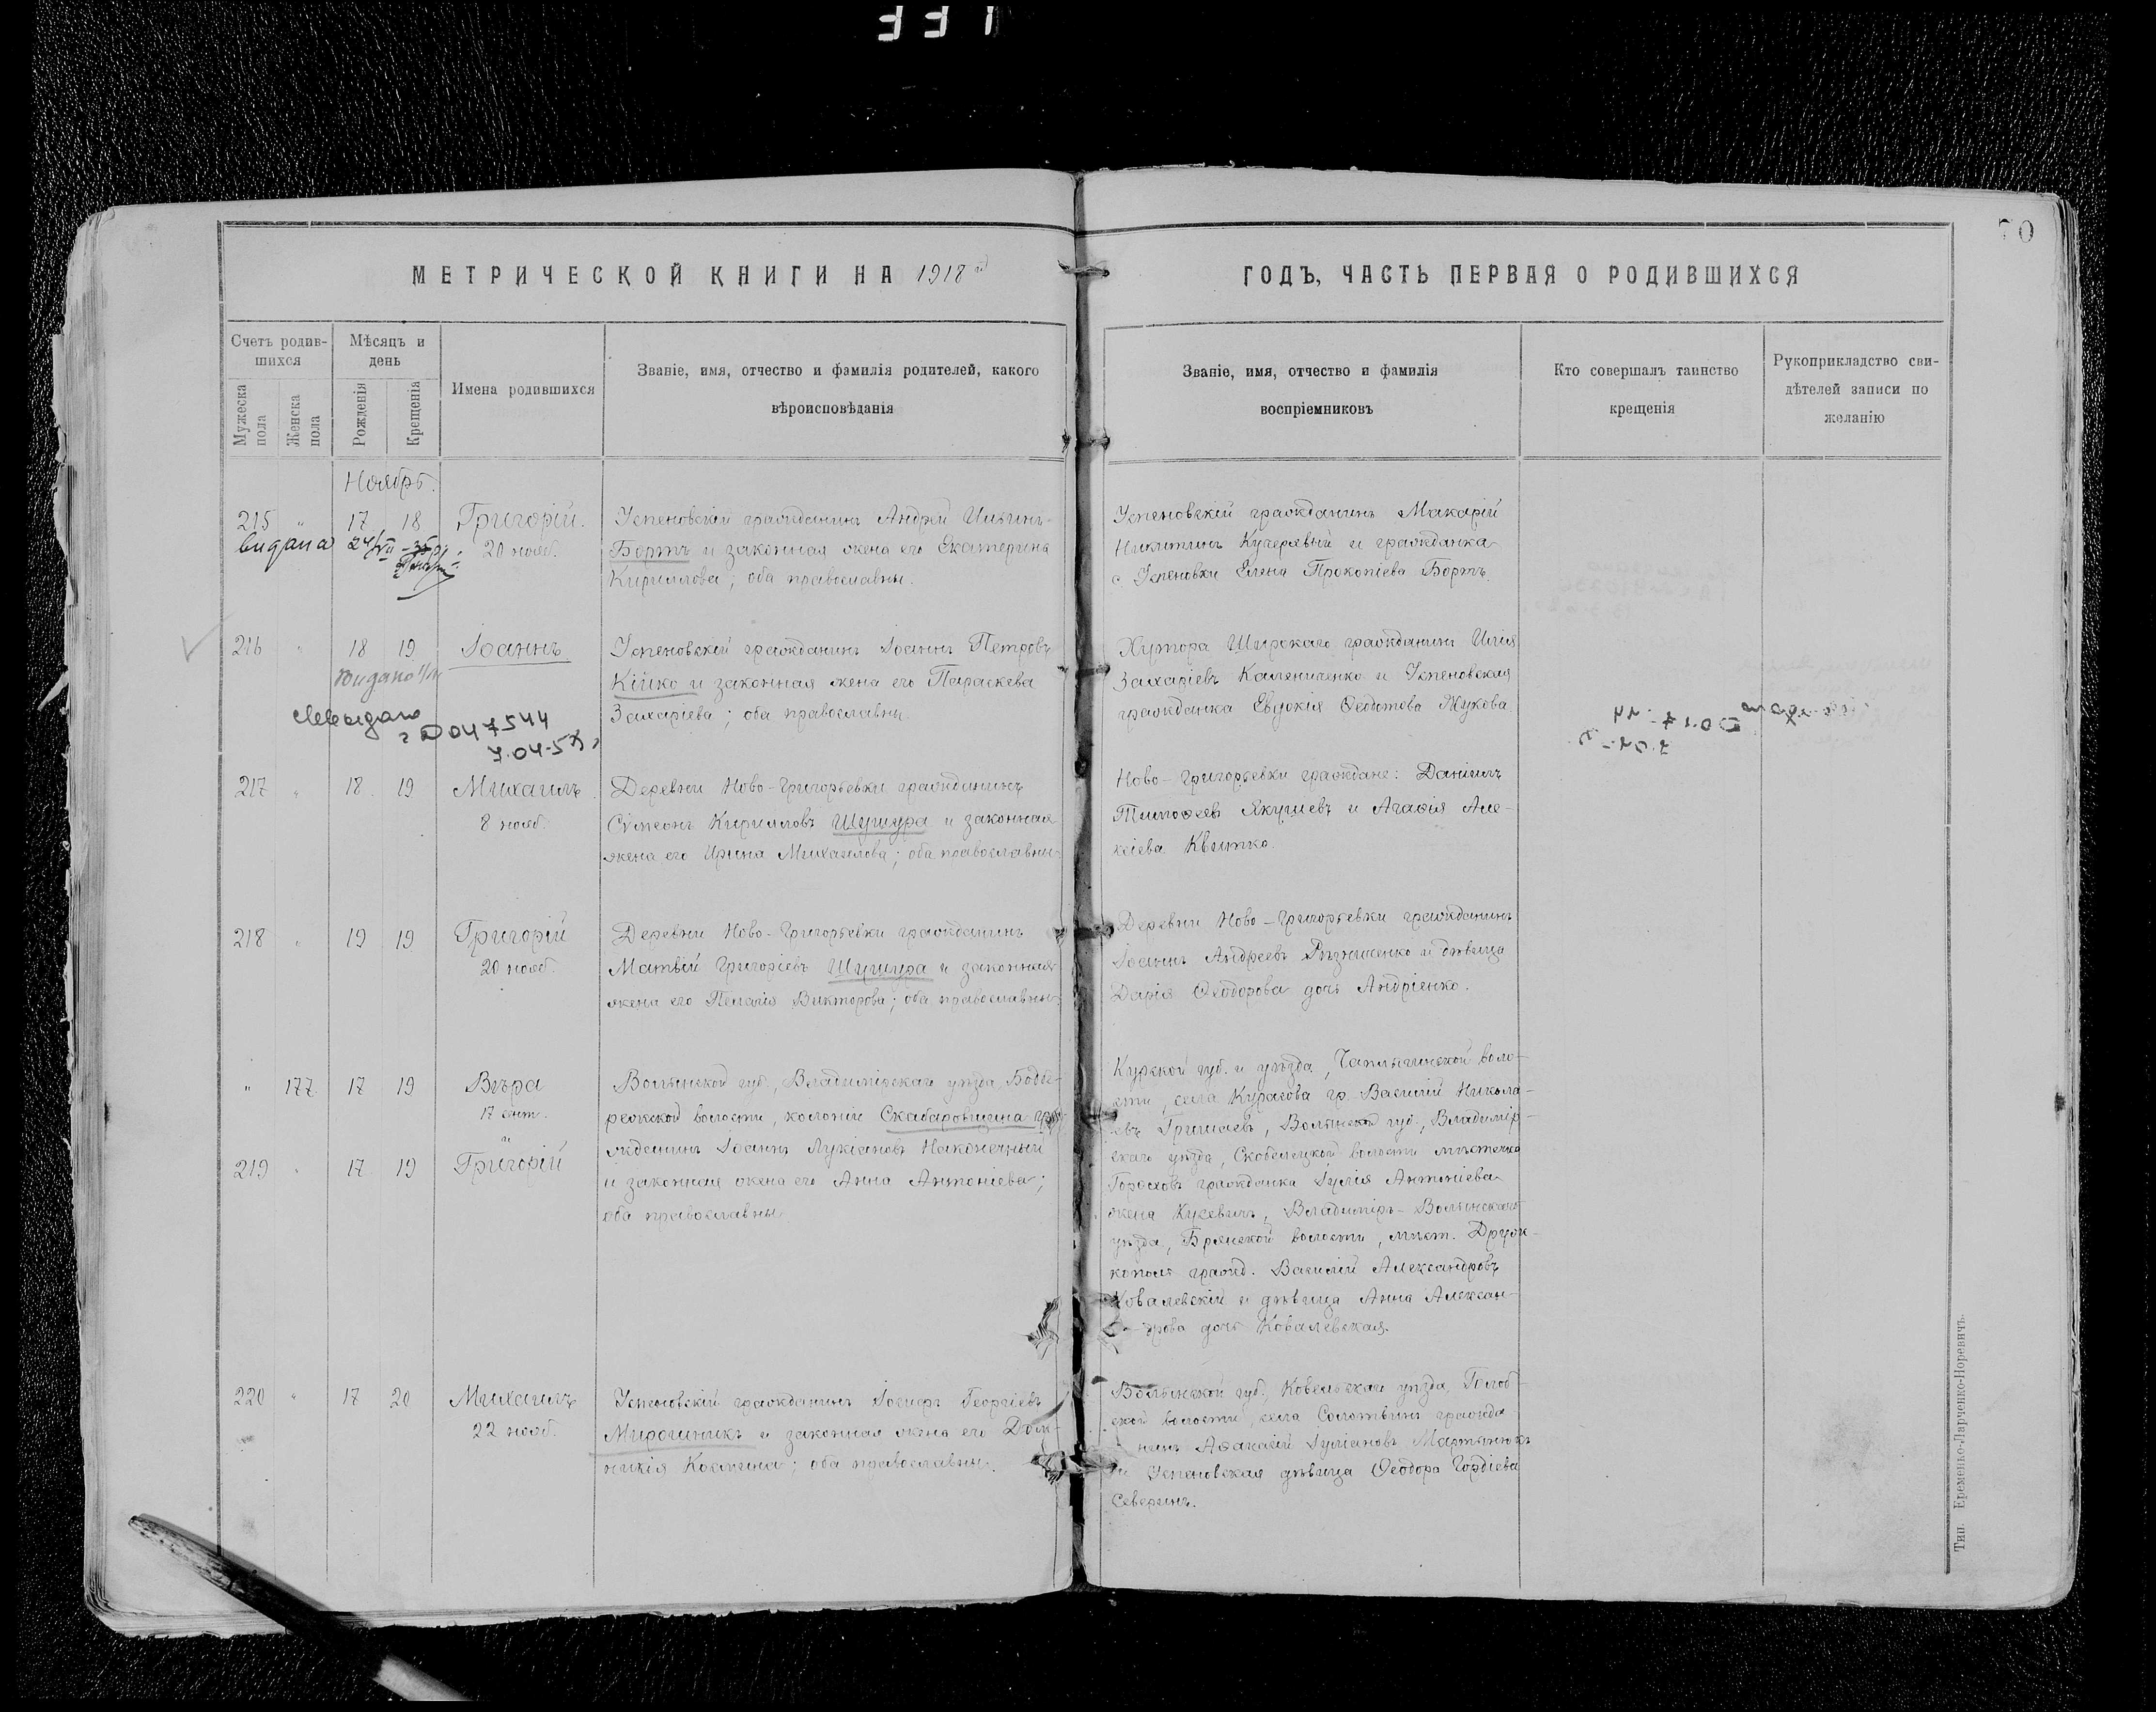 70
МЕТРИЧЕСКОЙ КНИГИ НА 1918
ГОДЪ, ЧАСТЬ ПЕРВАЯ О РОДИВШИХСЯ
Счетъ родив-
шихся
Мужеска
пола
Женска
пола
Мѣсяцъ и
день
Рожденія
Крещенія
Имена родившихся
Званіе, имя, отчество и фамилія родителей, какого
вѣроисповѣданія
Званіе, имя, отчество и фамилія
воспріемниковъ
Кто совершалъ таинство
крещенія
Рукоприкладство сви-
дѣтелей записи по
желанію
Ноябрь.
215 " 17 18 Григорій.
20 нояб.
видана 24/VII
Успеновскій гражданинъ Андрей Ильинъ
Бортъ и законная жена его Екатерина
Кириллова; оба православны.
Успеновскій гражданинъ Макарій
Никитинъ Кучерявый и гражданка
с Успеновки Елена Прокопіева Бортъ.
216 " 18 19 Іоаннъ
047544
7.04-5
Успеновскій гражданинъ Іоаннъ Петровъ
Кійко и законная жена его Параскева
Захаріева; оба православны.
Хутора Широкаго гражданинъ Илія
Захаріевъ Калениченко и Успеновская
гражданка Евдокія Ѳеодотова Жукова
217 " 18 19 Михаилъ
8 нояб.
Деревни Ново-Григорьевки гражданинъ
Сѵмеонъ Кирилловъ Шушура и законная
жена его Ирина Михаилова; оба православны
Ново-Григорьевки граждане: Даніилъ
Тимоѳеевъ Якушевъ и Агаѳія Але-
ксіева Квитко.
218 " 19 19 Григорій
20 нояб.
Деревни Ново-Григорьевки гражданинъ
Матвій Григоріевъ Шушура и законная
жена его Пелагія Викторова; оба православны
Деревни Ново-Григорьевки гражданинъ
Іоаннъ Андреевъ и дѣвица
Дарія Ѳеодорова дочь Андріенко.
" 177 17 19 Вѣра
17 сент.
219 " 17 19 Григорій
Волынской губ., Владимірскаго уѣзда,
волости, колоніи Скабаровщина гра-
жданинъ Іоаннъ Лукіановъ Наконечный
и законная жена его Анна Антоніева;
оба православны
Курской губ. и уѣзда, воло-
сти, села Курасова гр. Василій Никола-
евъ Гришаевъ, Волынской губ., Владимір-
скаго уѣзда, Скобелецкой волости мѣстечка
Гороховъ гражданка Іулія Антоніева
жена Кусевичъ, Владиміръ-Волынскаго
уѣзда, Брянской волости, мѣст. Друж-
кополь гражд. Василій Александровъ
Ковалевскій и дѣвица Анна Алексан-
дрова дочь Ковалевская.
220 " 17 20 Михаилъ
22 нояб.
Успеновскій гражданинъ Іосифъ Георгіевъ
Мирошникъ и законная жена его Дом-
никія Космина; оба православны.
Волынской губ., Ковельскаго уѣзда, Голоб-
ской волости, села Солотвинъ гражда-
нинъ Аѳанасій Іуліановъ Мартынюкъ
и Успеновская дѣвица Ѳеодора Гордіева
Северинъ.
Тип. Еременко-Ларченко-Норевичъ.